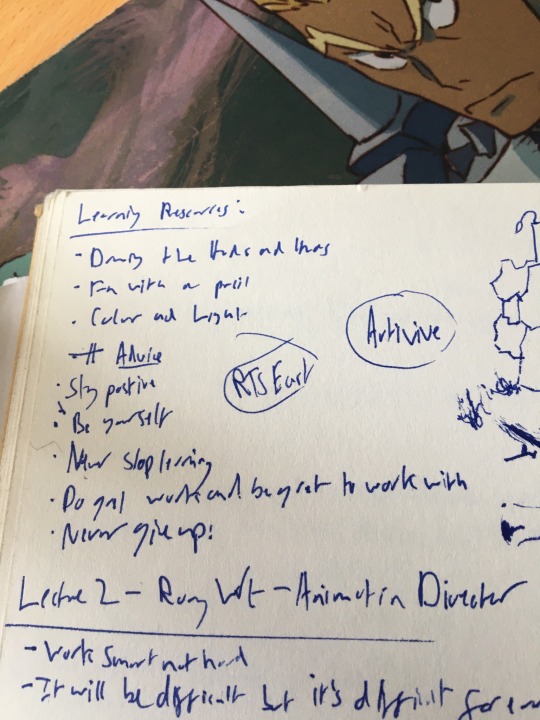 Learning Resources:
- Drawing the Heads and Hands
- Fun with a pencil
- Color and Light
# Advice
Artivive
RTS East
· Stay positive
· Be yourself
· Never stop learning
· Do great work and be great to work with
· Never give up!
Lecture 2 - - Animation Director
- Work smart not hard
- It will be difficult but it's difficult for